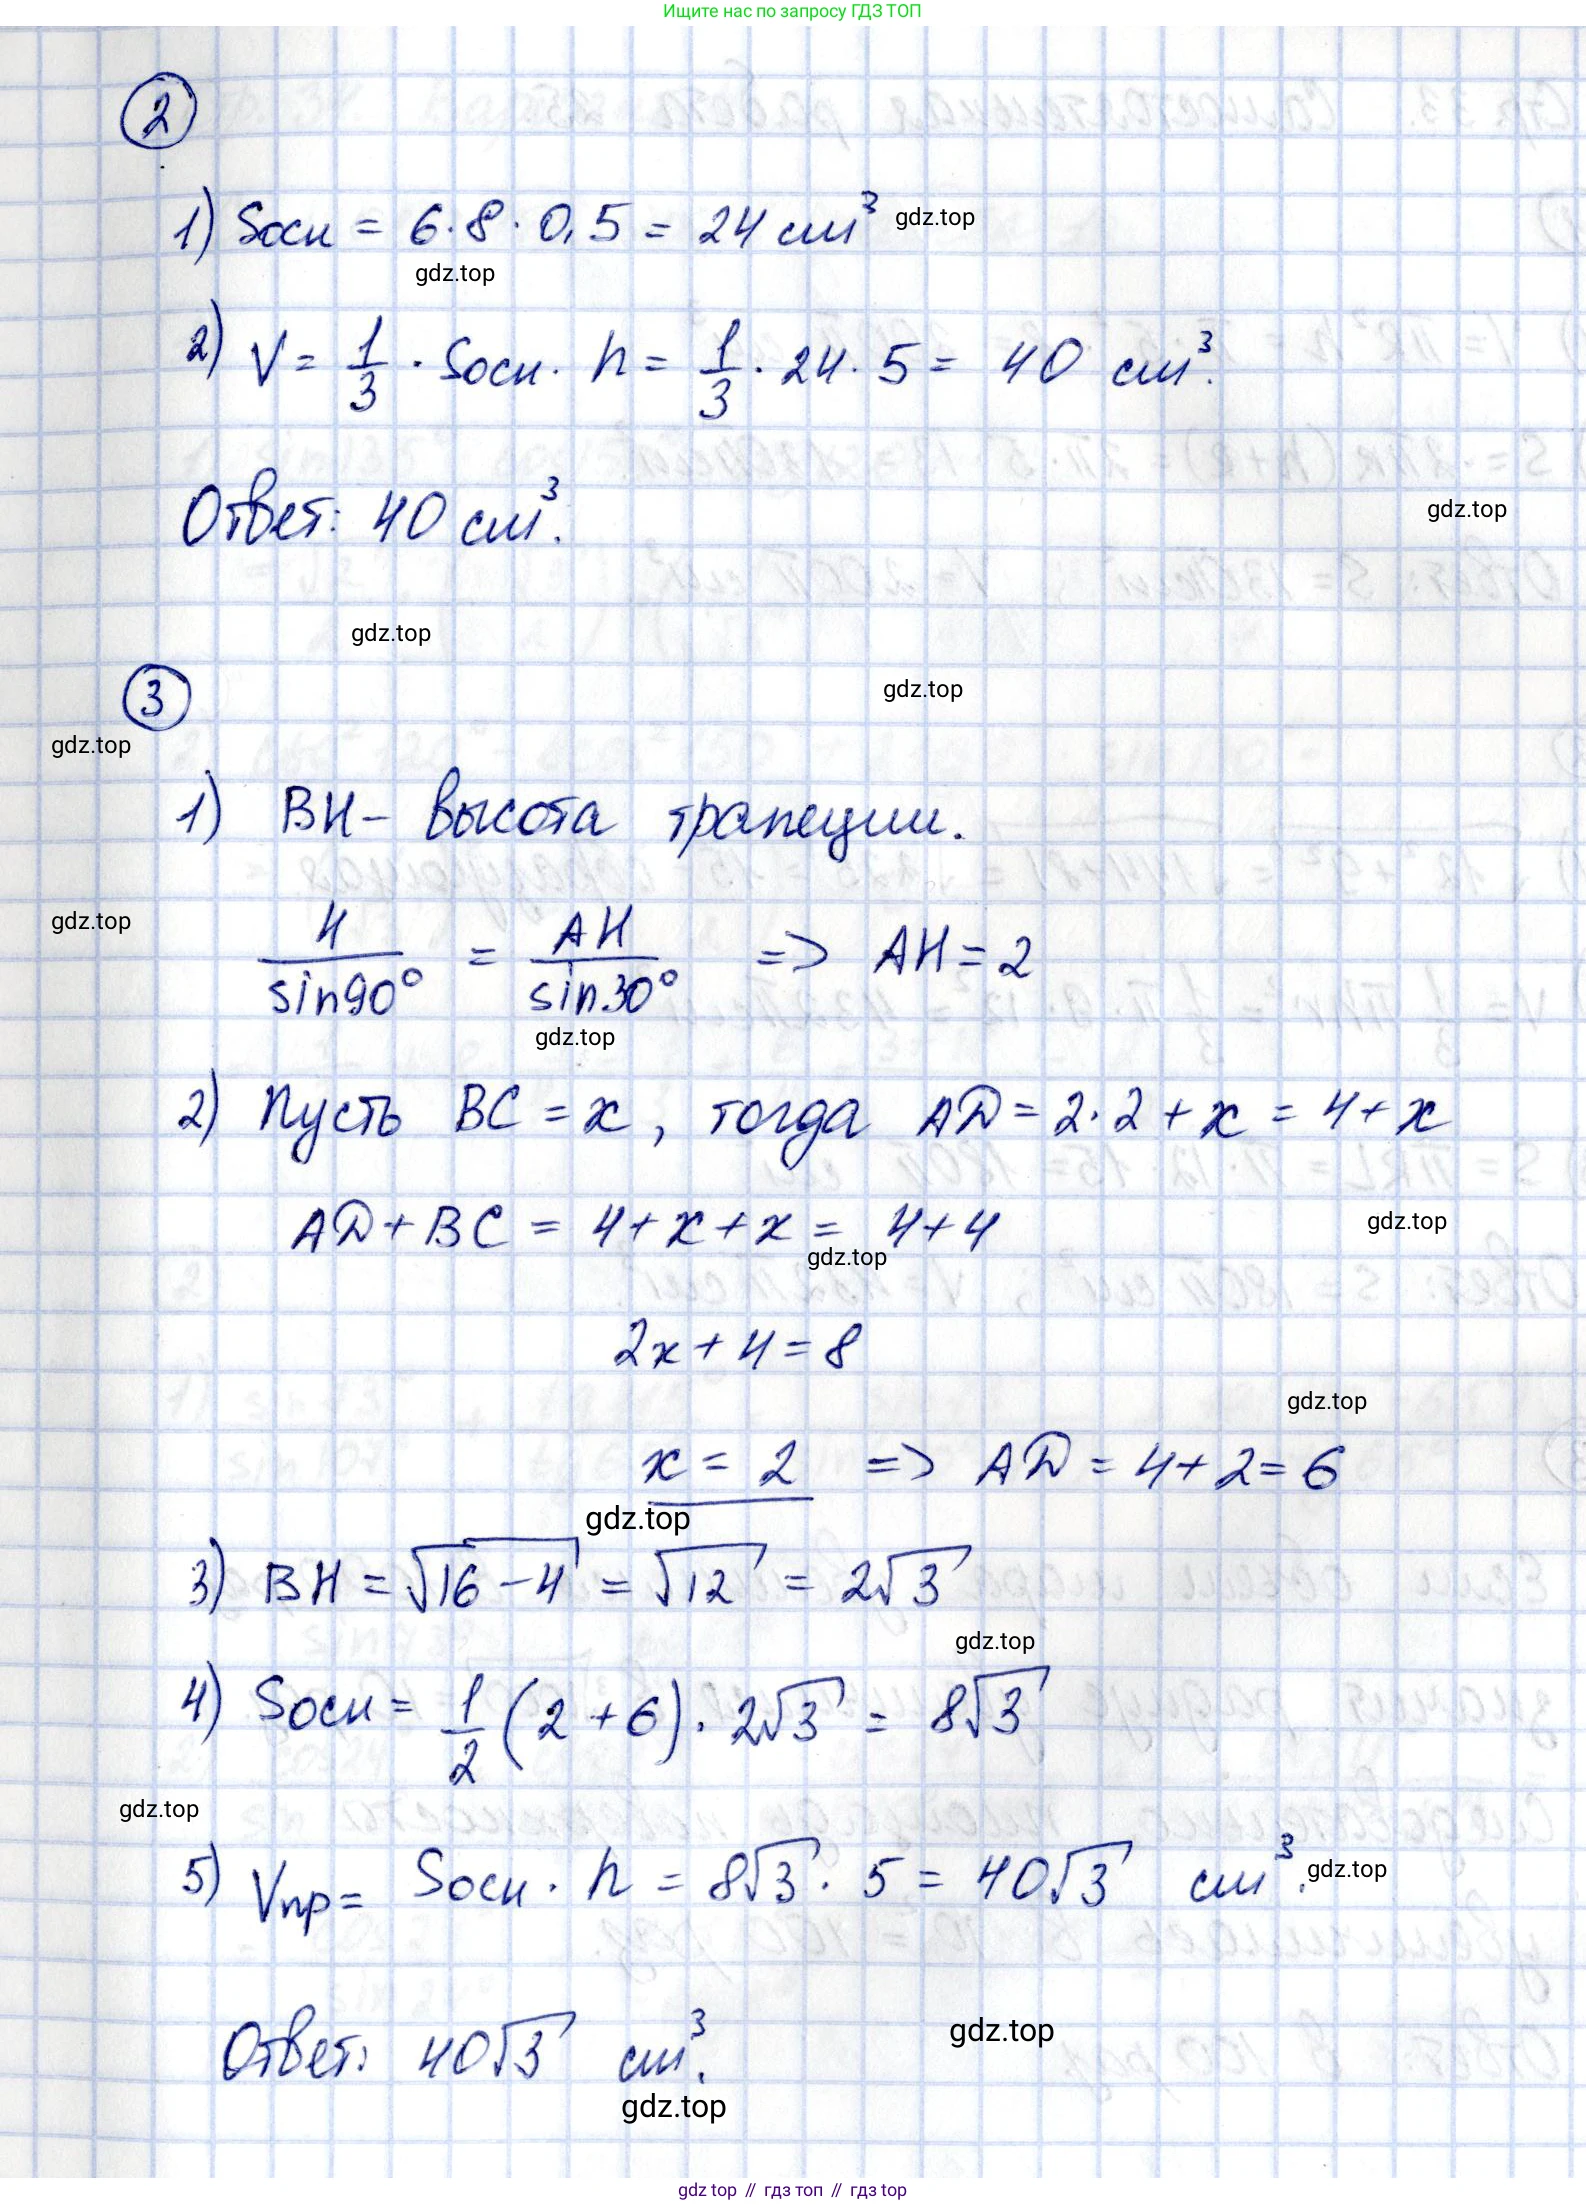 Ищите нас по запросу ГДЗ ТОП
2
1) Sосн = 6·8·0,5 = 24 см³
gdz.top
gdz.top
2) V = 1/3 · Sосн · h = 1/3 · 24 · 5 = 40 см³.
Ответ: 40 см³.
gdz.top
gdz.top
3
gdz.top
gdz.top
1) BH – высота трапеции.
4/sin90° = AH/sin30° => AH = 2
gdz.top
gdz.top
2) Пусть BC = x, тогда AD = 2·2 + x = 4 + x
AD + BC = 4 + x + x = 4 + 4
gdz.top
gdz.top
2x + 4 = 8
gdz.top
x = 2 => AD = 4 + 2 = 6
gdz.top
3) BH = √16 – 4 = √12 = 2√3
gdz.top
4) Sосн = 1/2 (2 + 6) · 2√3 = 8√3
gdz.top
5) Vпр = Sосн · h = 8√3 · 5 = 40√3 см³.
gdz.top
Ответ: 40√3 см³.
gdz.top
gdz.top
gdz.top // гдз топ // гдз top